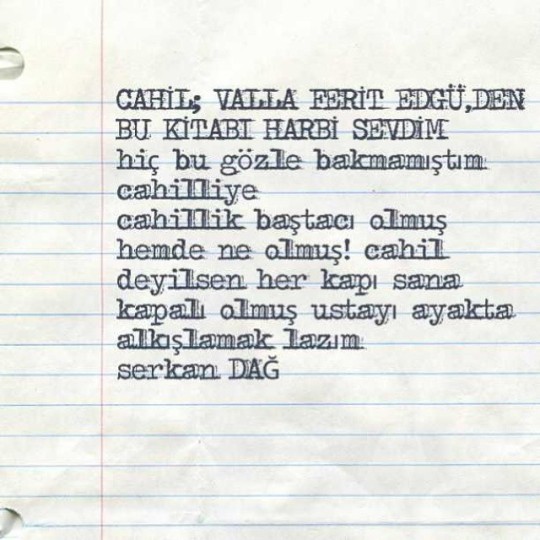 CAHİL; VALLA FERİT EDGÜ,DEN
BU KİTABI HARBİ SEVDİM
hiç bu gözle bakmamıştım
cahilliye
cahillik baştacı olmuş
hemde ne olmuş! cahil
deyilsen her kapı sana
kapalı olmuş ustayı ayakta
alkışlamak lazım
serkan DAĞ